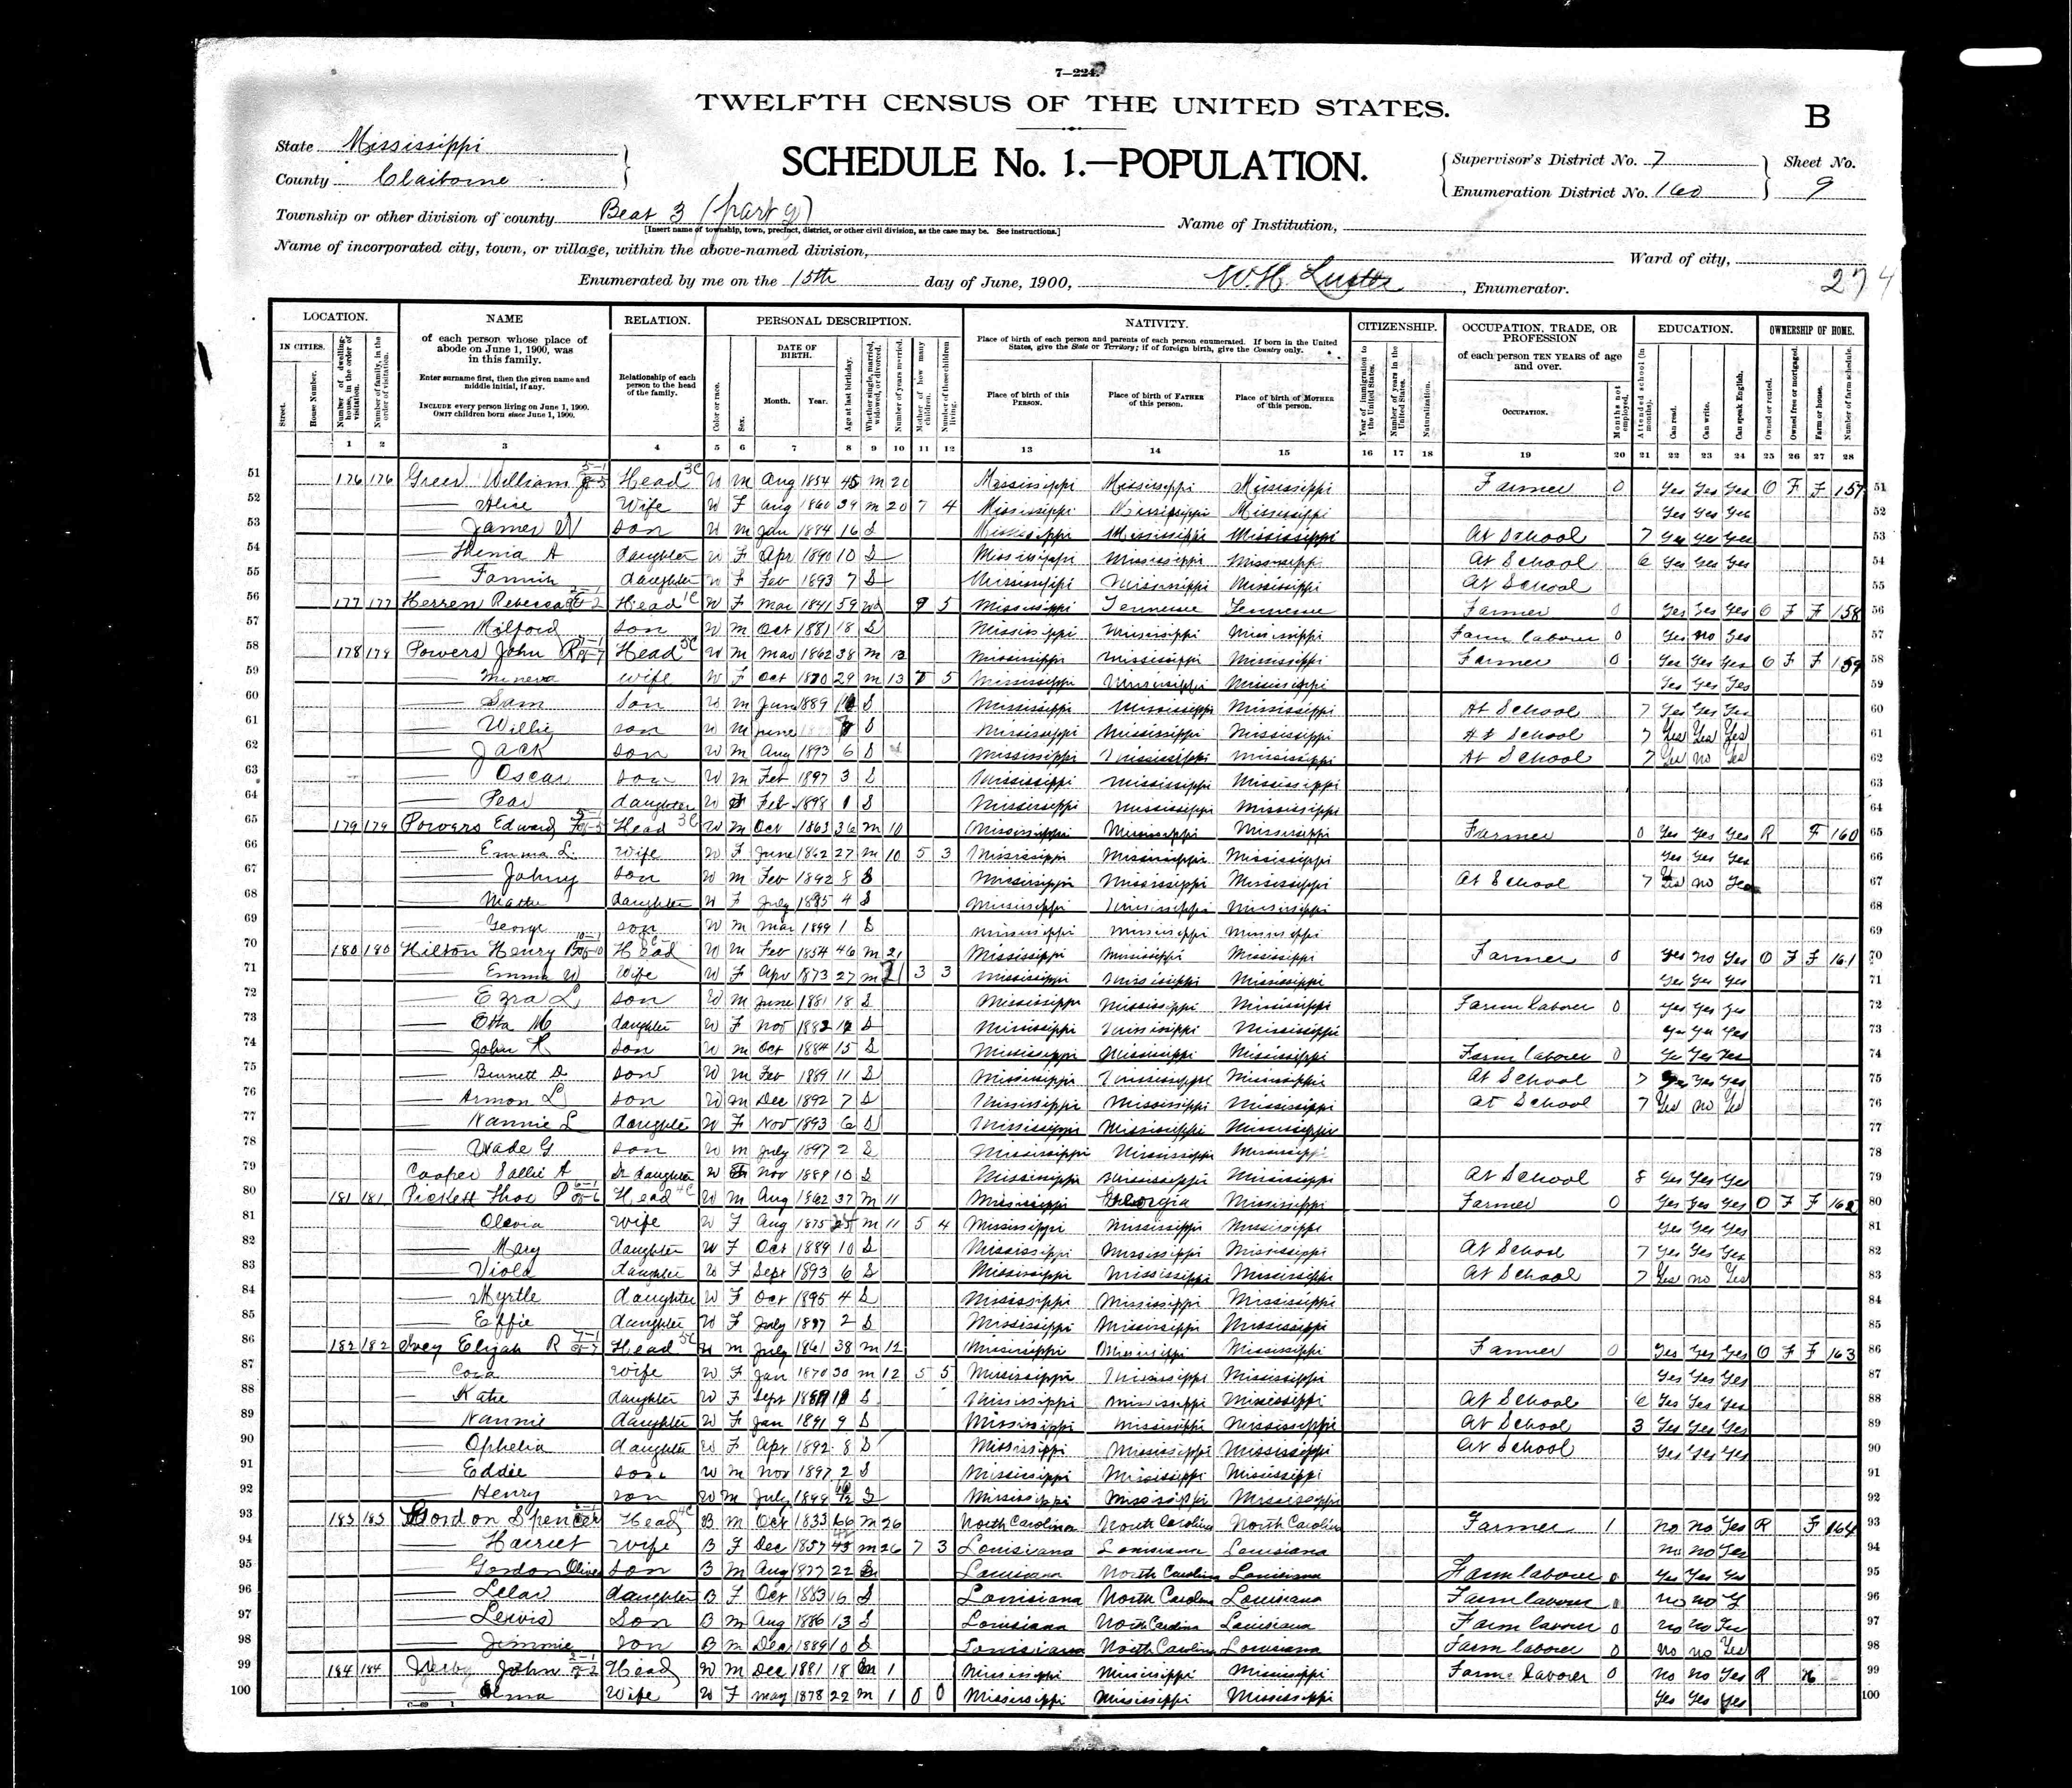 7—224.
TWELFTH CENSUS OF THE UNITED STATES.
B
State Mississippi
County Claiborne
SCHEDULE No. 1.—POPULATION.
Supervisor's District No. 7
Enumeration District No. 160
Sheet No.
9
Township or other division of county Beat 3 (part of)
[Insert name of township, town, precinct, district, or other civil division, as the case may be. See instructions.]
Name of Institution,
Name of incorporated city, town, or village, within the above-named division,
Ward of city,
274
Enumerated by me on the 15th day of June, 1900, W. H. Luster, Enumerator.
LOCATION. NAME RELATION. PERSONAL DESCRIPTION. NATIVITY. CITIZENSHIP. OCCUPATION, TRADE, OR PROFESSION EDUCATION. OWNERSHIP OF HOME.
IN CITIES. Street. House Number. Number of dwelling-house, in the order of visitation. Number of family, in the order of visitation.
of each person whose place of abode on June 1, 1900, was in this family.
Enter surname first, then the given name and middle initial, if any.
INCLUDE every person living on June 1, 1900. OMIT children born since June 1, 1900.
Relationship of each person to the head of the family.
Color or race. Sex. DATE OF BIRTH. Month. Year. Age at last birthday. Whether single, married, widowed, or divorced. Number of years married. Mother of how many children. Number of these children living.
Place of birth of each person and parents of each person enumerated. If born in the United States, give the State or Territory; if of foreign birth, give the Country only.
Place of birth of this PERSON. Place of birth of FATHER of this person. Place of birth of MOTHER of this person.
Year of immigration to the United States. Number of years in the United States. Naturalization.
of each person TEN YEARS of age and over.
OCCUPATION. Months not employed. Attended school (in months). Can read. Can write. Can speak English. Owned or rented. Owned free or mortgaged. Farm or house. Number of farm schedule.
1 2 3 4 5 6 7 8 9 10 11 12 13 14 15 16 17 18 19 20 21 22 23 24 25 26 27 28
51 176 176 Greer William Head W M Aug 1854 45 M 20 Mississippi Mississippi Mississippi Farmer 0 Yes Yes Yes O F F 157 51
52 — Alice Wife W F Aug 1860 39 M 20 7 4 Mississippi Mississippi Mississippi Yes Yes Yes 52
53 — James W Son W M Jan 1884 16 S Mississippi Mississippi Mississippi At School 7 Yes Yes Yes 53
54 — A daughter W F Apr 1890 10 S Mississippi Mississippi Mississippi At School 6 Yes Yes Yes 54
55 — Fannin daughter W F Feb 1893 7 S Mississippi Mississippi Mississippi At School 55
56 177 177 Herren Rebecca Head W F Mar 1841 59 Wd 9 5 Mississippi Tennessee Tennessee Farmer 0 Yes Yes Yes O F F 158 56
57 — Milford Son W M Oct 1881 18 S Mississippi Mississippi Mississippi Farm laborer 0 Yes no Yes 57
58 178 178 Powers John R Head W M Mar 1862 38 M 13 Mississippi Mississippi Mississippi Farmer 0 Yes Yes Yes O F F 159 58
59 — Mineva Wife W F Oct 1870 29 M 13 5 Mississippi Mississippi Mississippi Yes Yes Yes 59
60 — Sam Son W M June 1889 S Mississippi Mississippi Mississippi At School 7 Yes Yes Yes 60
61 — Willie son W M June S Mississippi Mississippi Mississippi At School 7 Yes Yes Yes 61
62 — Jack son W M Aug 1893 6 S Mississippi Mississippi Mississippi At School 7 Yes no Yes 62
63 — Oscar son W M Feb 1897 3 S Mississippi Mississippi Mississippi 63
64 — Pear daughter W F Feb 1898 1 S Mississippi Mississippi Mississippi 64
65 179 179 Powers Edward Head W M Oct 1863 36 M 10 Mississippi Mississippi Mississippi Farmer 0 Yes Yes Yes R F 160 65
66 — Emma L. Wife W F June 1862 27 M 10 5 3 Mississippi Mississippi Mississippi Yes Yes Yes 66
67 — Johny son W M Feb 1892 8 S Mississippi Mississippi Mississippi At School 7 Yes no Yes 67
68 — daughter W F July 1895 4 S Mississippi Mississippi Mississippi 68
69 — George son W M Mar 1899 1 S Mississippi Mississippi Mississippi 69
70 180 180 Hilton Henry B Head W M Feb 1854 46 M 21 Mississippi Mississippi Mississippi Farmer 0 Yes no Yes O F F 161 70
71 — Emma W Wife W F Apr 1873 27 M 3 3 Mississippi Mississippi Mississippi Yes Yes Yes 71
72 — Ezra L son W M June 1881 18 S Mississippi Mississippi Mississippi Farm laborer 0 Yes Yes Yes 72
73 — Etta M daughter W F Nov 1882 S Mississippi Mississippi Mississippi Yes Yes Yes 73
74 — John R son W M Oct 1884 15 S Mississippi Mississippi Mississippi Farm laborer 0 Yes Yes Yes 74
75 — Bennett D son W M Feb 1889 11 S Mississippi Mississippi Mississippi At School 7 Yes Yes Yes 75
76 — Armon L son W M Dec 1892 7 S Mississippi Mississippi Mississippi At School 7 Yes no Yes 76
77 — Nannie L daughter W F Nov 1893 6 S Mississippi Mississippi Mississippi 77
78 — Wade G son W M July 1897 2 S Mississippi Mississippi Mississippi 78
79 Cooper Sallie A St daughter W F Nov 1889 10 S Mississippi Mississippi Mississippi At School 8 Yes Yes Yes 79
80 181 181 Pickett Thos P Head W M Aug 1862 37 M 11 Mississippi Georgia Mississippi Farmer 0 Yes Yes Yes O F F 162 80
81 — Olevia Wife W F Aug 1875 M 11 5 4 Mississippi Mississippi Mississippi Yes Yes Yes 81
82 — Mary daughter W F Oct 1889 10 S Mississippi Mississippi Mississippi At School 7 Yes Yes Yes 82
83 — Viola daughter W F Sept 1893 6 S Mississippi Mississippi Mississippi At School 7 Yes no Yes 83
84 — Myrtle daughter W F Oct 1895 4 S Mississippi Mississippi Mississippi 84
85 — Effie daughter W F July 1897 2 S Mississippi Mississippi Mississippi 85
86 182 182 Ivey Elijah R Head W M July 1861 38 M 12 Mississippi Mississippi Mississippi Farmer 0 Yes Yes Yes O F F 163 86
87 — Cora Wife W F Jan 1870 30 M 12 5 5 Mississippi Mississippi Mississippi Yes Yes Yes 87
88 — Katie daughter W F Sept S Mississippi Mississippi Mississippi At School 6 Yes Yes Yes 88
89 — Nannie daughter W F Jan 1891 9 S Mississippi Mississippi Mississippi At School 3 Yes Yes Yes 89
90 — Ophelia daughter W F Apr 1892 8 S Mississippi Mississippi Mississippi At School Yes Yes Yes 90
91 — Eddie son W M Nov 1897 2 S Mississippi Mississippi Mississippi 91
92 — Henry son W M July 1899 10/12 S Mississippi Mississippi Mississippi 92
93 183 183 Gordon Spencer Head B M Oct 1833 66 M 26 North Carolina North Carolina North Carolina Farmer 1 no no Yes R F 164 93
94 — Harriet Wife B F Dec 1857 M 26 7 3 Louisiana Louisiana Louisiana no no Yes 94
95 — Gordon Oliver son B M Aug 1877 22 Louisiana North Carolina Louisiana Farm laborer 0 Yes Yes Yes 95
96 — Lelar daughter B F Oct 1883 16 S Louisiana North Carolina Louisiana Farm laborer 0 no no Y 96
97 — Lewis Son B M Aug 1886 13 S Louisiana North Carolina Louisiana Farm laborer 0 no no Yes 97
98 — Jimmie son B M Dec 1889 10 S Louisiana North Carolina Louisiana Farm laborer 0 no no Yes 98
99 184 184 John Head W M Dec 1881 18 M 1 Mississippi Mississippi Mississippi Farm Laborer 0 no no Yes R H 99
100 — Wife W F May 1878 22 M 1 0 0 Mississippi Mississippi Mississippi Yes Yes Yes 100